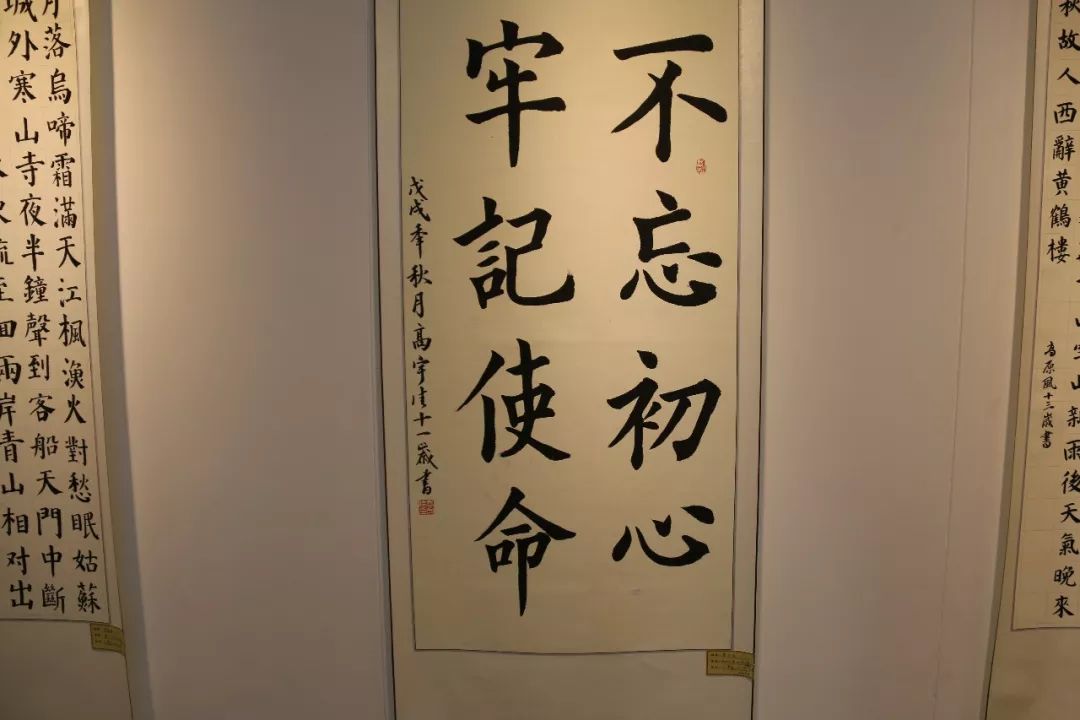 空山新雨後天氣晚來
秋故人西辭黃鶴樓
高原風十三歲書
不忘初心
牢記使命
戊戌年秋月高宇十一歲書
月落烏啼霜滿天江楓漁火對愁眠姑蘇
城外寒山寺夜半鐘聲到客船天門中斷
流至回兩岸青山相对出